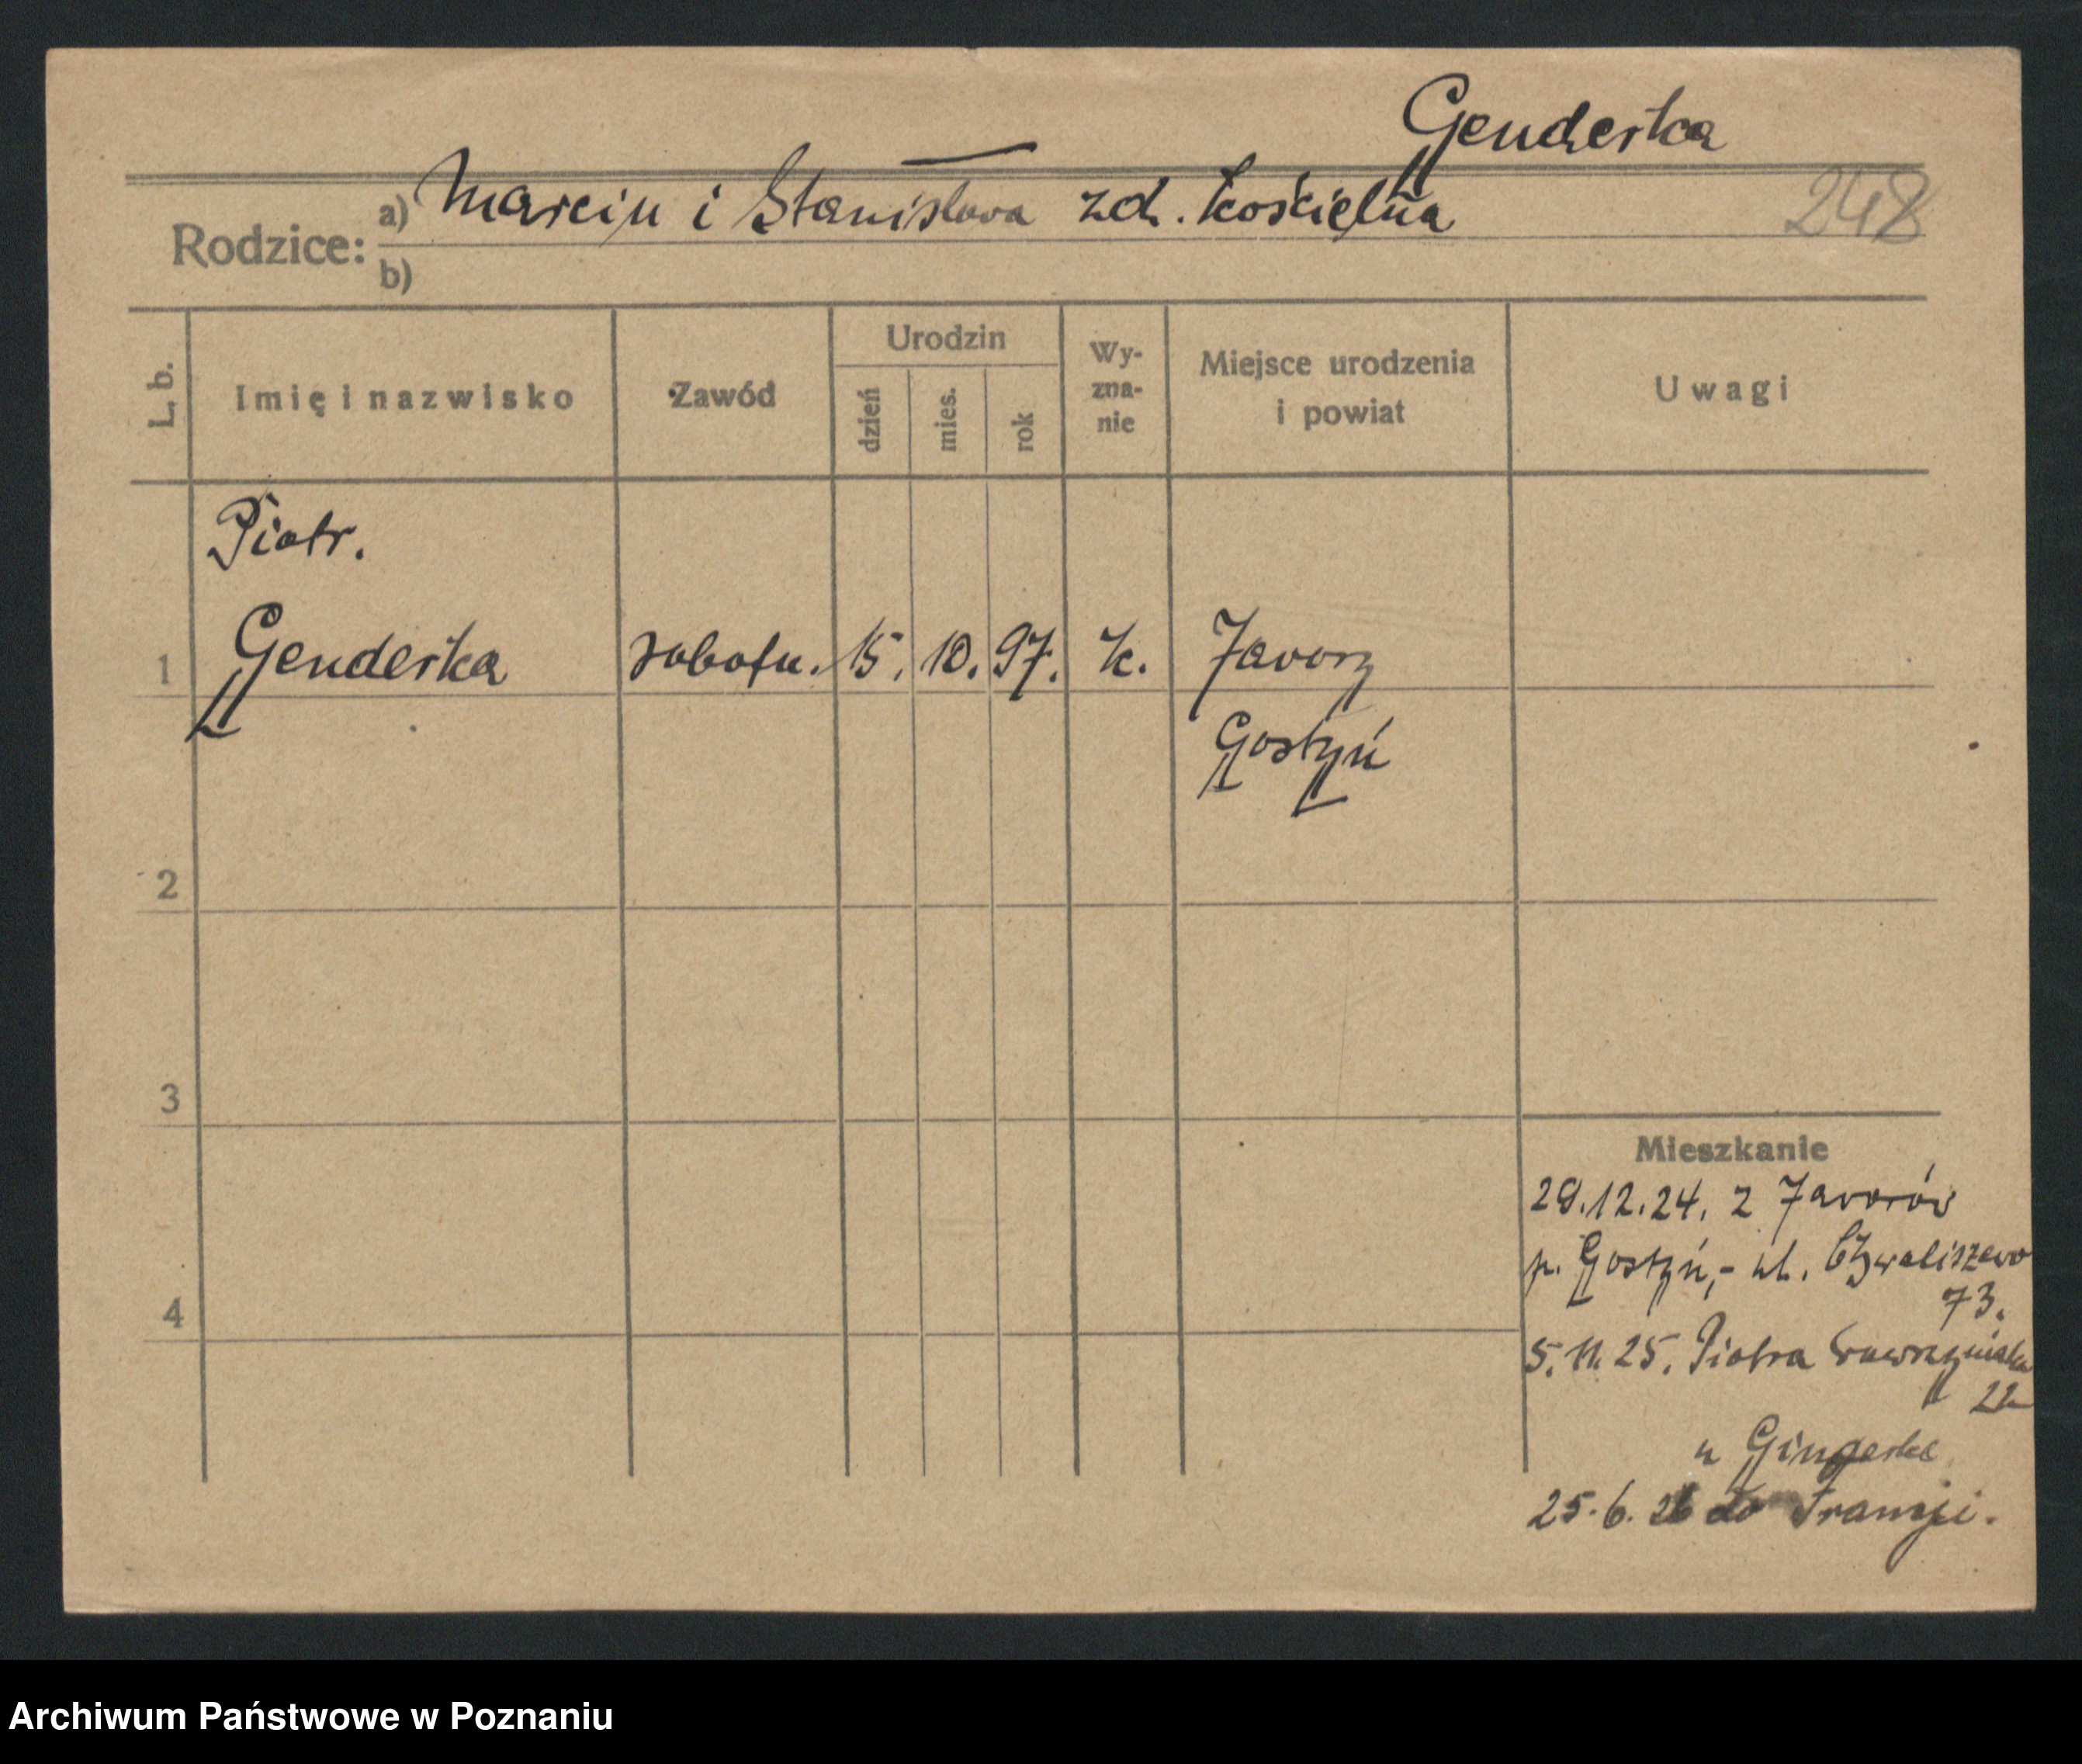 Genderka
248
Rodzice: a) Marcin i Stanisława zd. Kościelna
b)
L. b.
Imię i nazwisko
Zawód
Urodzin
dzień
mies.
rok
Wy-
zna-
nie
Miejsce urodzenia
i powiat
Uwagi
Piotr.
1 Genderka robotn. 15. 10. 97. k. Jawory
Gostyń
2
3
4
Mieszkanie
29.12.24. z Jaworów
p. Gostyń,- ul. Chwaliszewo
73.
5.11.25. Piotra Wawrzyniaka
22
u
25.6.26 do Francji.
Archiwum Państwowe w Poznaniu